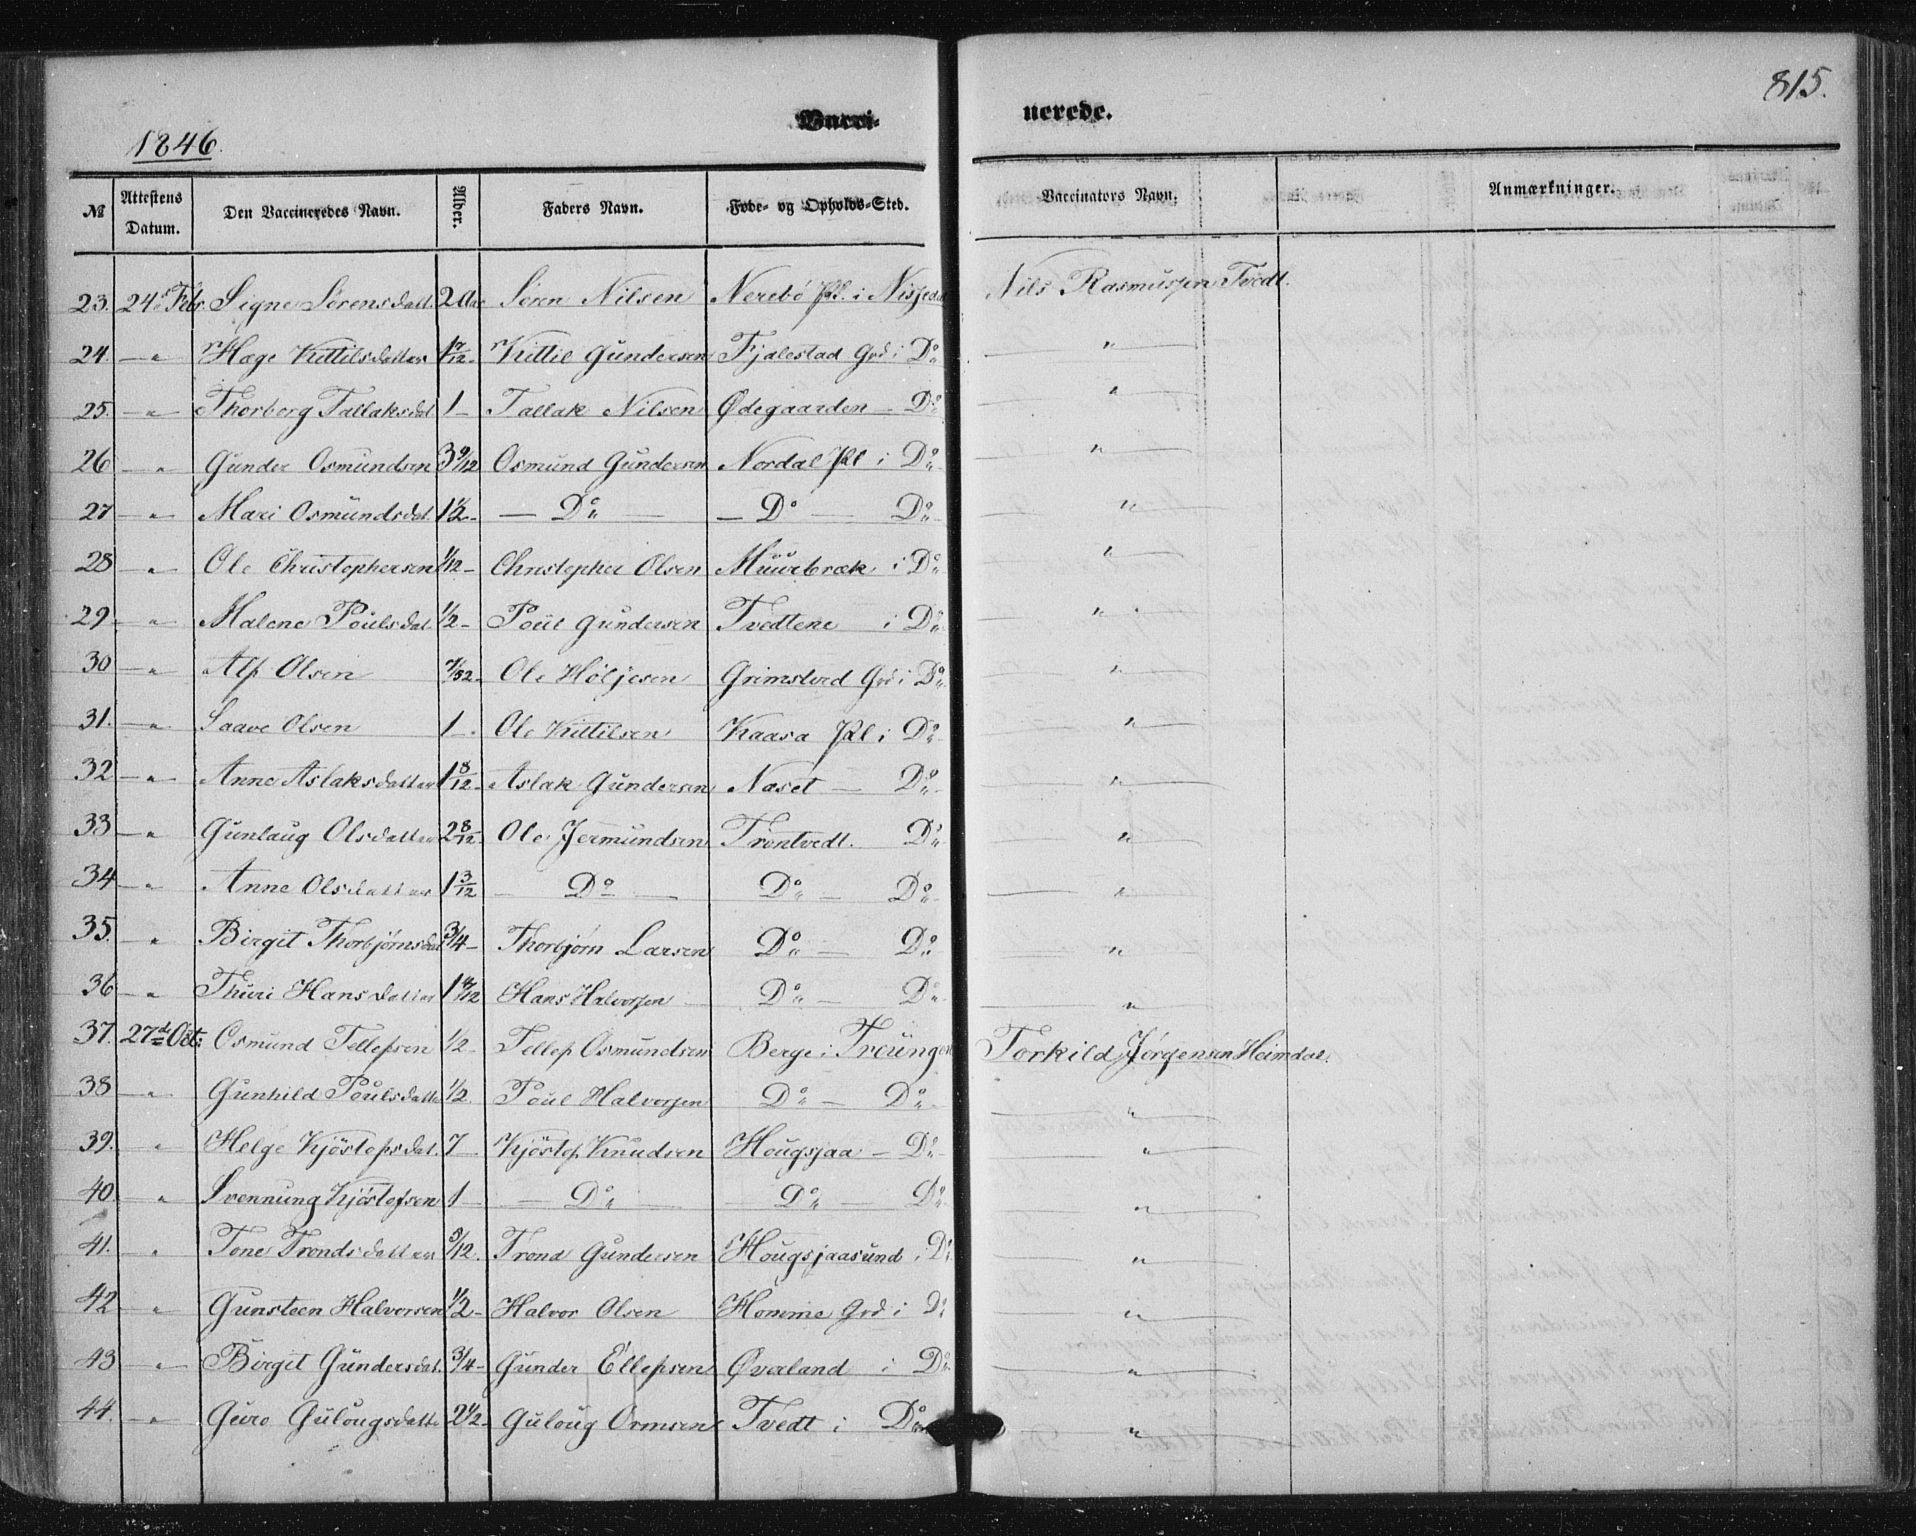 815.
1846.
Vacci-
nerede.
№ Attestens Datum. Den Vaccineredes Navn. Alder. Faders Navn. Føde- og Opholds-Sted. Vaccinators Navn. Anmærkninger.
23. 24de Febr. Signe Sörensdatt. 2 Aar Sören Nilsen Nerebö Pl. i Nisse Nils Rasmussen Tvedt.
24. — " Hæge Kittilsdatter 1 7/12 Kittil Gundersen Fjalestad Grd i Do "
25. — " Thorberg Tallaksdat 1 — Tallak Nilsen Ødegaarden — Do "
26 — " Gunder Osmundsen 3 9/12 Osmund Gundersen Nordal Pl i Do "
27 — " Mari Osmundsdat. 1 1/2 — Do — — Do — Do "
28 " Ole Christophersen 1/12 — Christopher Olsen Muurbræk i Do "
29. " Malene Poulsdat 1/2 — Poul Gundersen Tvedtene i Do "
30 — " Alf Olsen 7/52 Ole Höljesen Grimstved Grd i Do "
31. — " Saave Olsen 1 — Ole Kittilsen Kaasa Pl i Do "
32 — " Anne Aslaksdatter 1 8/12 Aslak Gundersen Næset — Do "
33 — " Gunlaug Olsdatter 2 8/12 Ole Jermundsen Tröntvedt. Do "
34 — " Anne Olsdatter 1 3/12 — Do — Do — Do "
35. " Birgit Thorbjörnsdat 3/4 — Thorbjörn Larsen Do — Do "
36 — " Thuri Hansdatter 1 /12 Hans Halvorsen Do — Do "
37. 27de Oct: Osmund Tellefsen 1/2 Tellef Osmundsen Berge i Treungen Torkild Jörgensen Heimdal.
38 " Gunhild Poulsdatte 1/2 Poul Halvorsen Do — Do "
39. " Helge Kjöstofsdat. 7 Kjöstof Knudsen Hougsjaa — Do "
40. " Svennung Kjöstofsen 1 — Do — — Do — Do "
41. " Tone Trondsdatter 5/12. Trond Gundersen Hougsjaasund i Do "
42 " Gunsteen Halvorsen 1/2 — Halvor Olsen Homme Grd i Do "
43 — " Birgit Gundersdat. 3/4 — Gunder Ellefsen Øverland i Do "
44. — " Guro Gulougsdatte 2 1/2 — Guloug Ormsen Tvedt i Do "